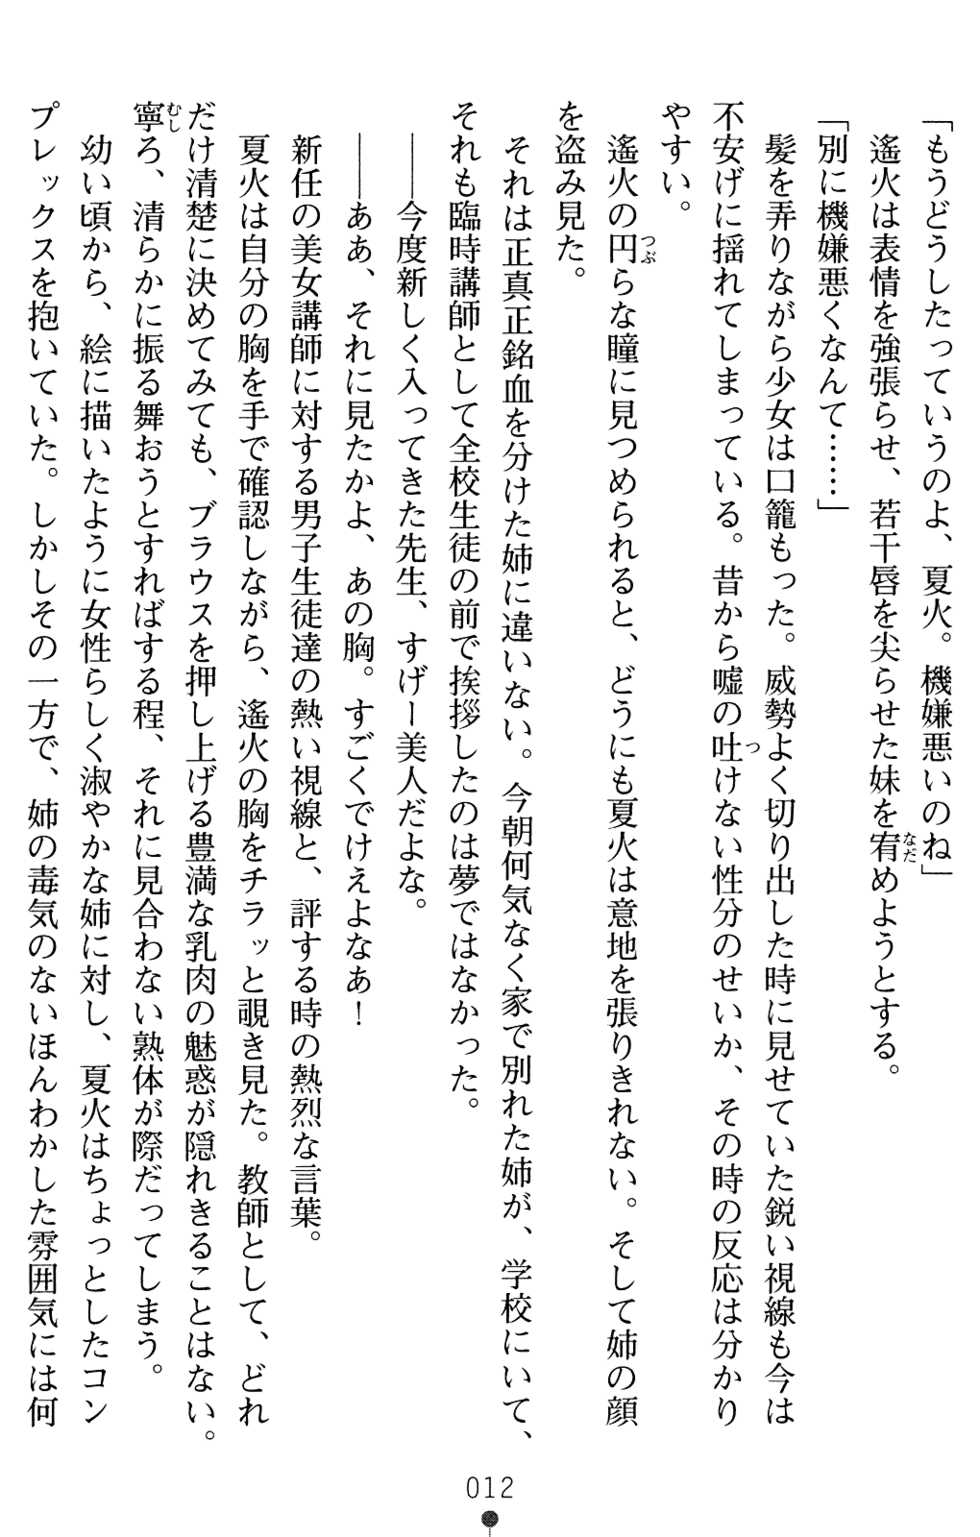 「もうどうしたっていうのよ、夏火。機嫌悪いのね」
　遙火は表情を強張らせ、若干唇を尖らせた妹を宥めようとする。
「別に機嫌悪くなんて……」
　髪を弄りながら少女は口籠もった。威勢よく切り出した時に見せていた鋭い視線も今は
不安げに揺れてしまっている。昔から嘘の吐けない性分のせいか、その時の反応は分かり
やすい。
　遙火の円らな瞳に見つめられると、どうにも夏火は意地を張りきれない。そして姉の顔
を盗み見た。
　それは正真正銘血を分けた姉に違いない。今朝何気なく家で別れた姉が、学校にいて、
それも臨時講師として全校生徒の前で挨拶したのは夢ではなかった。
　――今度新しく入ってきた先生、すげー美人だよな。
　――ああ、それに見たかよ、あの胸。すごくでけえよなあ！
　新任の美女講師に対する男子生徒達の熱い視線と、評する時の熱烈な言葉。
　夏火は自分の胸を手で確認しながら、遙火の胸をチラッと覗き見た。教師として、どれ
だけ清楚に決めてみても、ブラウスを押し上げる豊満な乳肉の魅惑が隠れきることはない。
寧ろ、清らかに振る舞おうとすればする程、それに見合わない熟体が際だってしまう。
　幼い頃から、絵に描いたように女性らしく淑やかな姉に対し、夏火はちょっとしたコン
プレックスを抱いていた。しかしその一方で、姉の毒気のないほんわかした雰囲気には何
012